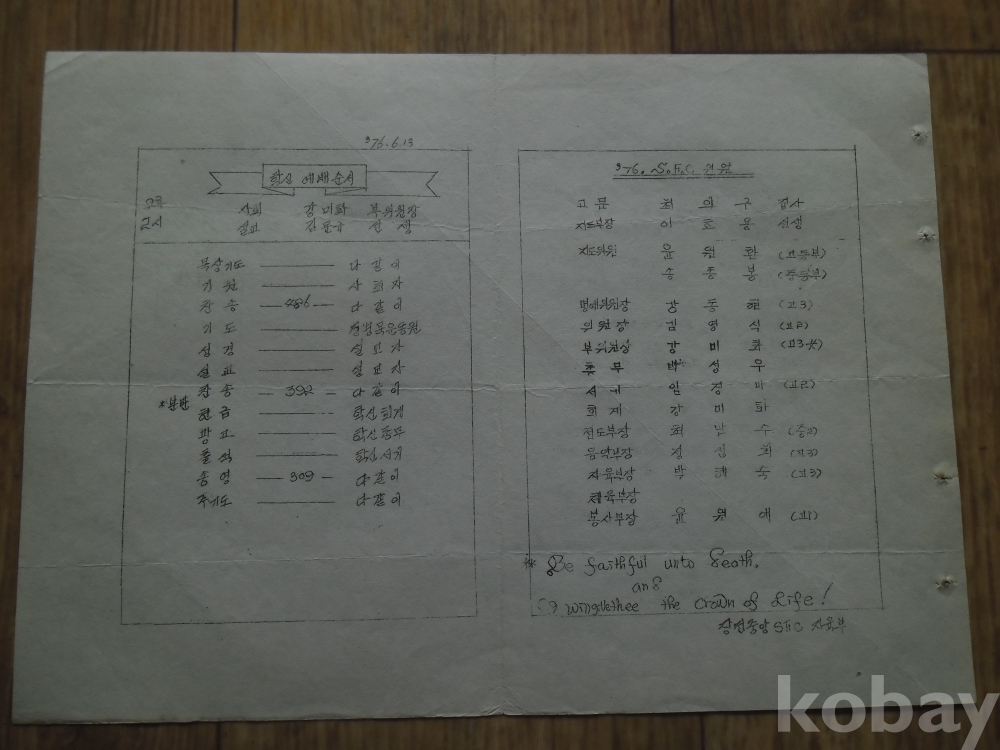 '76.6.13
학신 예배순서
사회 강미화 부위원장
설교 선생
묵상기도 다같이
기원 사회자
찬송 486 다같이
기도
성경 설교자
설교 설교자
찬송 392 다같이
헌금 학신회계
광고 학신총무
출석 학신서기
송영 309 다같이
주기도 다같이
'76. S.F.C. 임원
고문 최의구 집사
지도부장 이호웅 선생
지도위원 윤원환 (고등부)
송종봉 (중등부)
명예위원장 강동현 (고3)
위원장 김영석 (고2)
부위원장 강미화
총무 박성우
서기 임경미 (고2)
회계 강미화
전도부장 최만수
음악부장 정성희 (고3)
지육부장 박혜숙 (고3)
체육부장
봉사부장 윤원애 (고1)
* Be faithful unto death.
and
I will give thee the crown of Life!
중앙 SFC 지육부
kobay